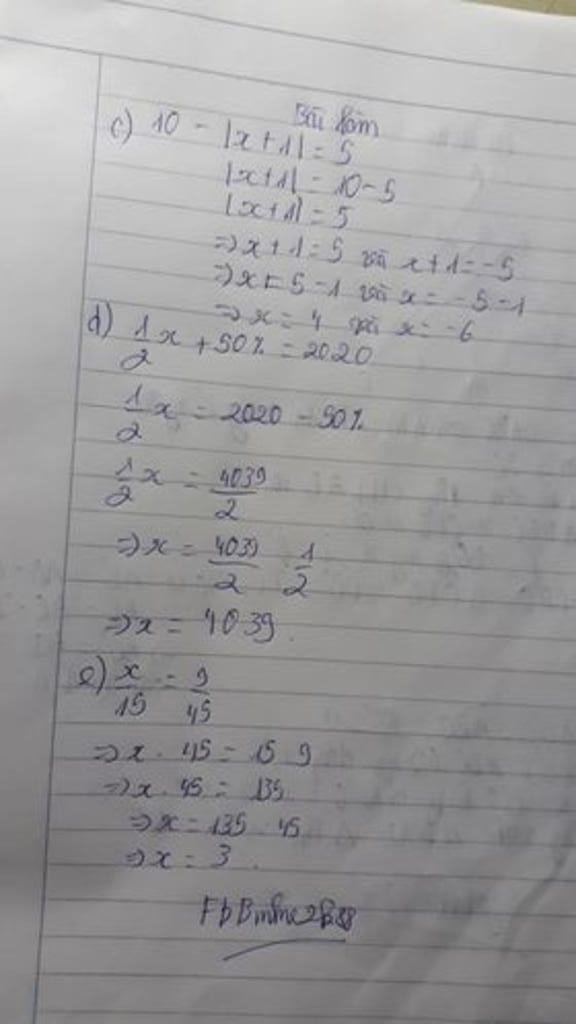 Bài làm
c) 10 - |x + 1| = 5
|x+1| = 10 - 5
|x+1| = 5
=> x + 1 = 5 và x + 1 = -5
=> x = 5 - 1 và x = -5 - 1
=> x = 4 và x = -6
d) 1/2 x + 50% = 2020
1/2 x = 2020 - 50%
1/2 x = 4039/2
=> x = 4039/2 : 1/2
=> x = 4039.
e) x/15 = 9/45
=> x . 45 = 15 . 9
=> x . 45 = 135
=> x = 135 : 45
=> x = 3.